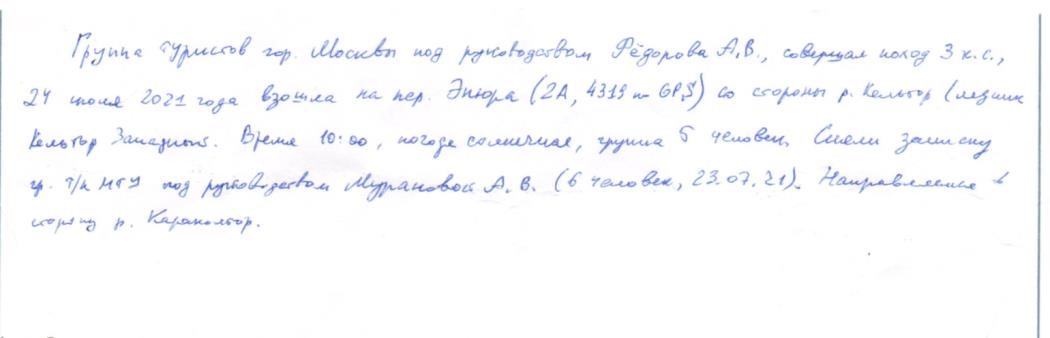 Группа туристов гор. Москвы под руководством Фёдорова А.В., совершая поход 3 к.с.,
24 июля 2021 года взошла на пер. Эпюра (2А, 4319 м GPS) со стороны р. Кельтор (ледник
Кельтор Западный). Время 10:00, погода солнечная, группа 5 человек. Сняли записку
гр. т/к МГУ под руководством Мурановой А.В. (6 человек, 23.07.21). Направляемся в
сторону р. Караколтор.